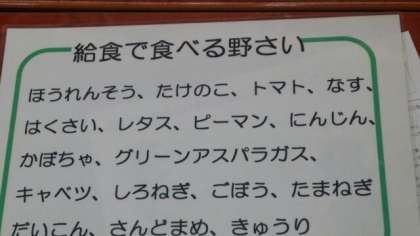 給食で食べる野さい
ほうれんそう、たけのこ、トマト、なす、
はくさい、レタス、ピーマン、にんじん、
かぼちゃ、グリーンアスパラガス、
キャベツ、しろねぎ、ごぼう、たまねぎ
だいこん、さんどまめ、きゅうり